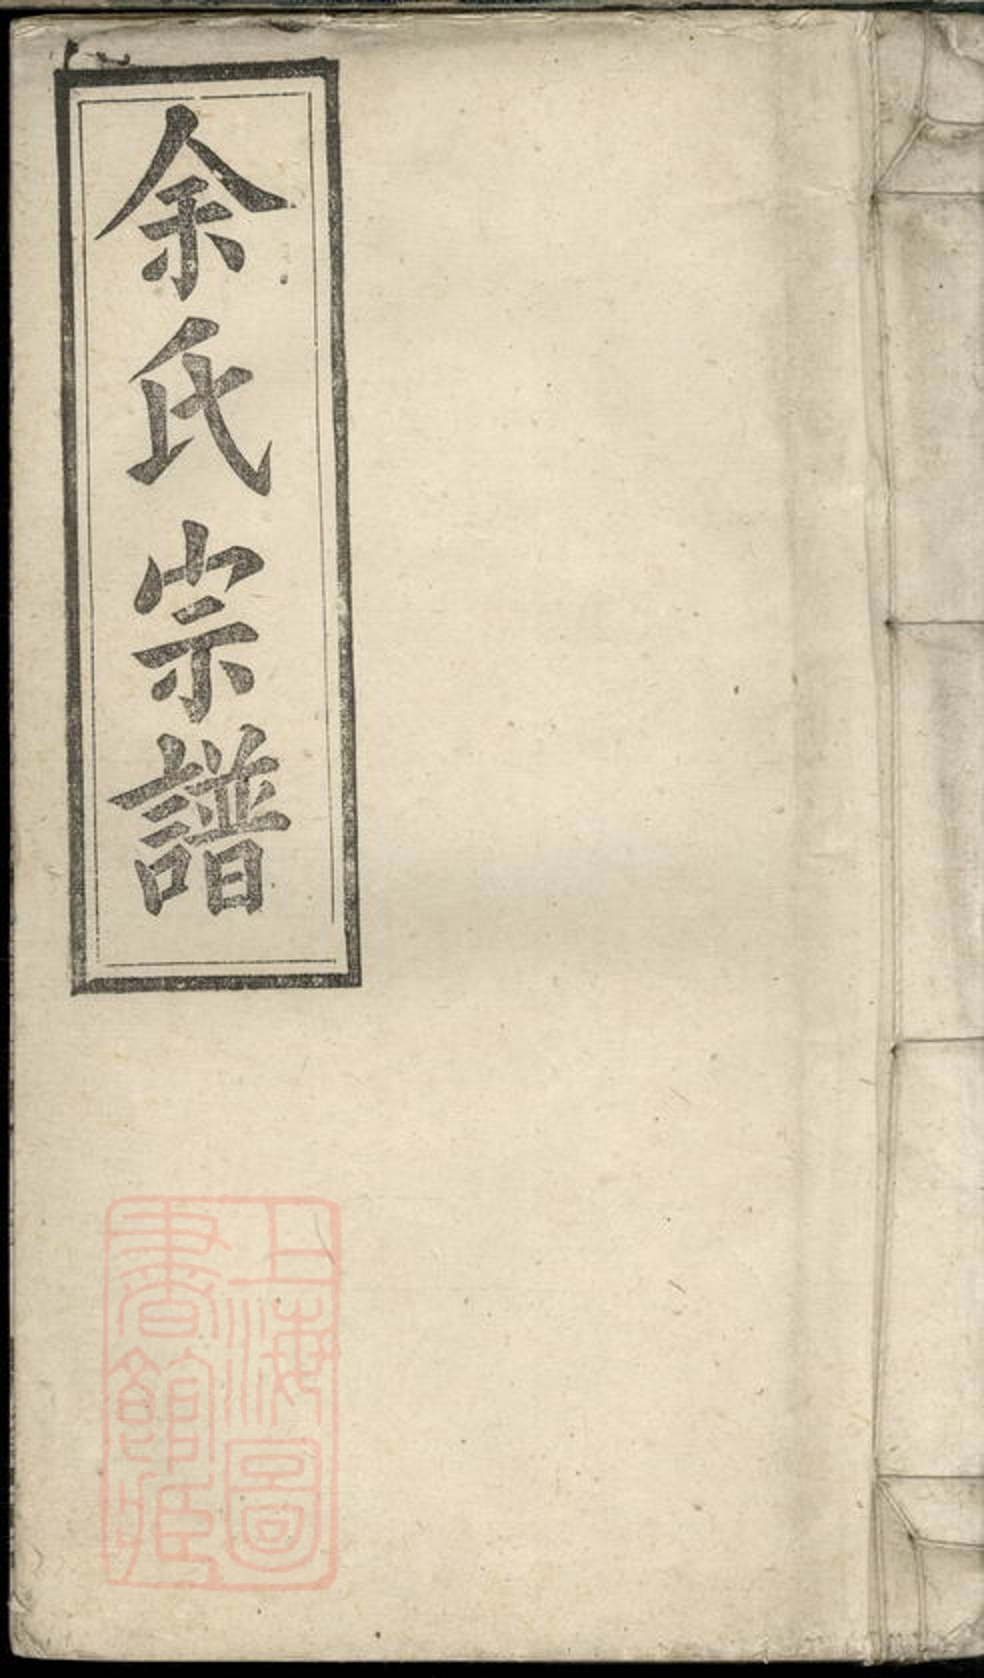 余氏宗譜
上海圖
書館藏